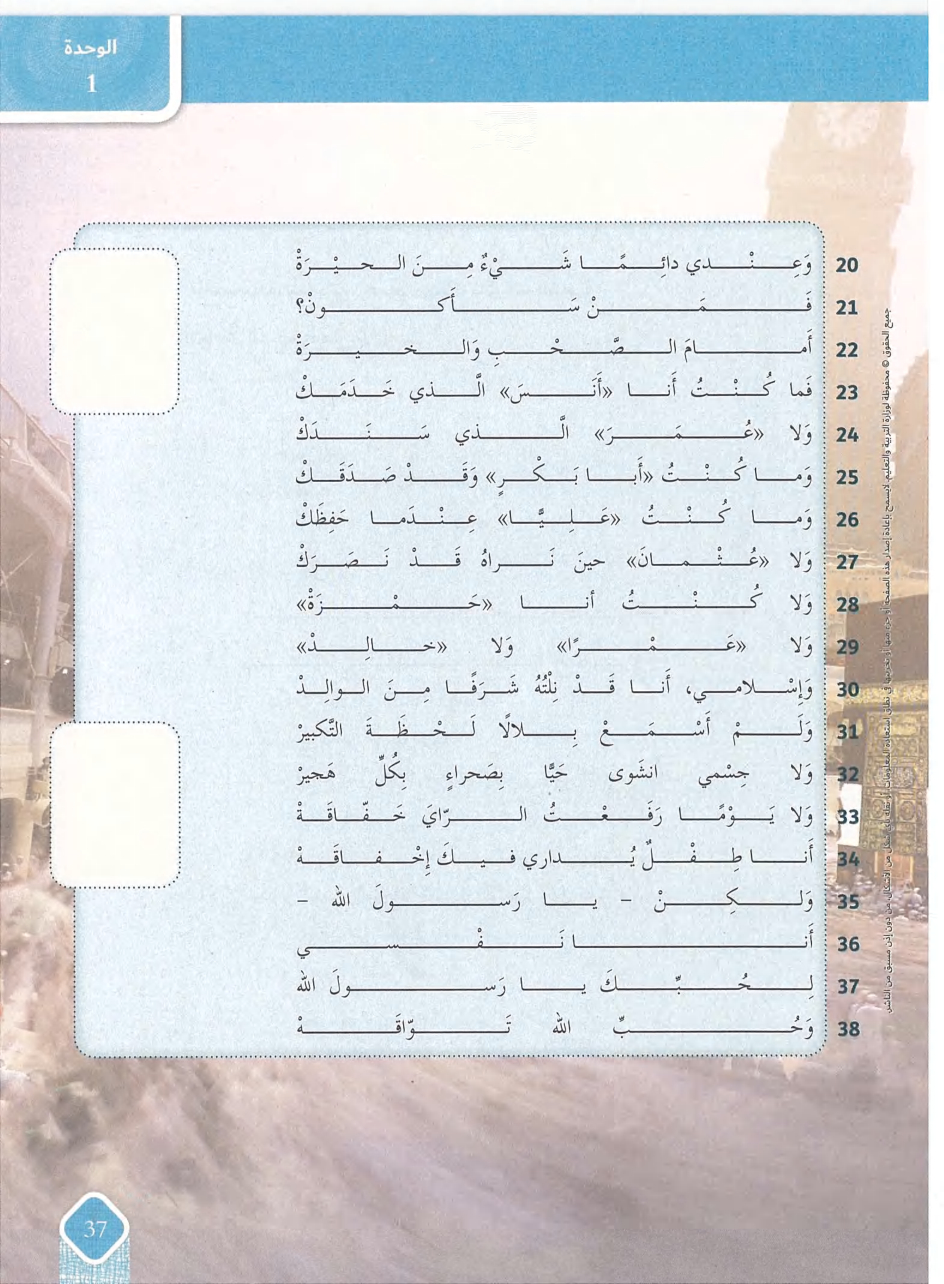 الوحدة
1
20 وَعِنْدي دائِمًا شَيْءٌ مِنَ الحيْرَةْ
21 فَمَنْ سَأَكونْ؟
22 أَمامَ الصَّحْبِ وَالخيرَةْ
23 فَما كُنْتُ أَنا «أَنَسَ» الَّذي خَدَمَكْ
24 وَلا «عُمَرَ» الَّذي سَنَدَكْ
25 وَما كُنْتُ «أَبا بَكْرٍ» وَقَدْ صَدَقَكْ
26 وَما كُنْتُ «عَلِيًّا» عِنْدَما حَفِظَكْ
27 وَلا «عُثْمانَ» حينَ نَراهُ قَدْ نَصَرَكْ
28 وَلا كُنْتُ أنا «حَمْزَةْ»
29 وَلا «عَمْرًا» وَلا «خالِدْ»
30 وَإِسْلامي، أَنا قَدْ نِلْتُهُ شَرَفًا مِنَ الوالِدْ
31 وَلَمْ أَسْمَعْ بِلالًا لَحْظَةَ التَّكبيرْ
32 وَلا جِسْمي انشَوى حَيًّا بِصَحراءٍ بِكُلِّ هَجيرْ
33 وَلا يَوْمًا رَفَعْتُ الرّايَ خَفّاقَةْ
34 أَنا طِفْلٌ يُداري فيكَ إِخْفاقَهْ
35 وَلكِنْ - يا رَسولَ الله -
36 أَنا نَفْسي
37 لِحُبِّكَ يا رَسولَ الله
38 وَحُبِّ الله تَوّاقَهْ
جميع الحقوق © محفوظة لوزارة التربية والتعليم. لايسمح بإعادة إصدار هذه الصفحة أو جزء منها أو تخزينها في نطاق استعادة المعلومات أو نقله بأي شكل من الأشكال، من دون إذن مسبق من الناشر.
37